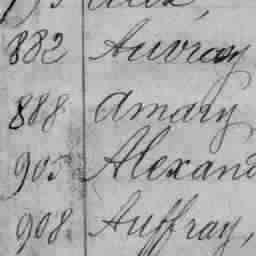 882 Auvray
888 Amary
905 Alexand
908 Auffray,